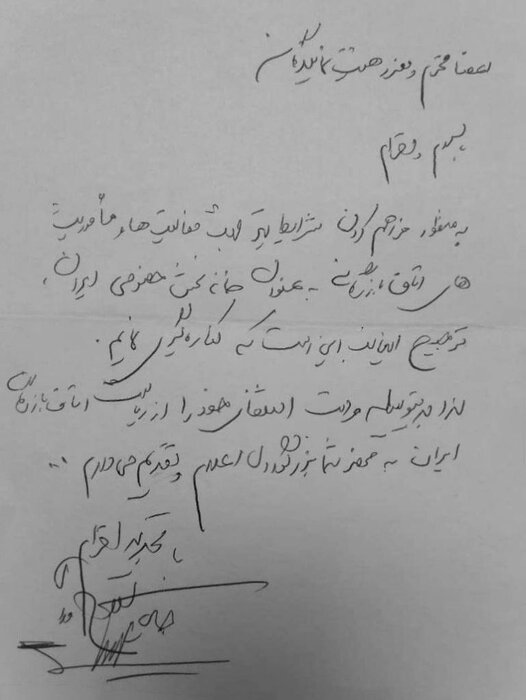 اعضا محترم و معزز هیئت نمایندگان
با سلام و احترام
به منظور فراهم کردن شرایط بهتر جهت فعالیت ها و مأموریت
های اتاق بازرگانی به عنوان خانه بخش خصوصی ایران،
ترجیح اینجانب این است که کناره گیری نمایم.
لذا بدینوسیله استعفای خود را از ریاست اتاق بازرگانی
ایران به محضر شما بزرگواران اعلام و تقدیم می دارم ...
با تجدید احترام